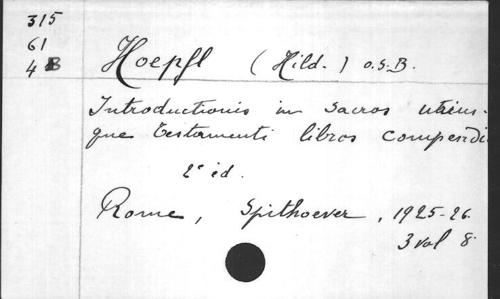 315
61
4 B
Hoepfl (Hild.) o.s.B.
Introductionis in sacros utrius-
que testamenti libros compendi
2e éd.
Rome, Spithoever, 1925-26.
3 vol 8°